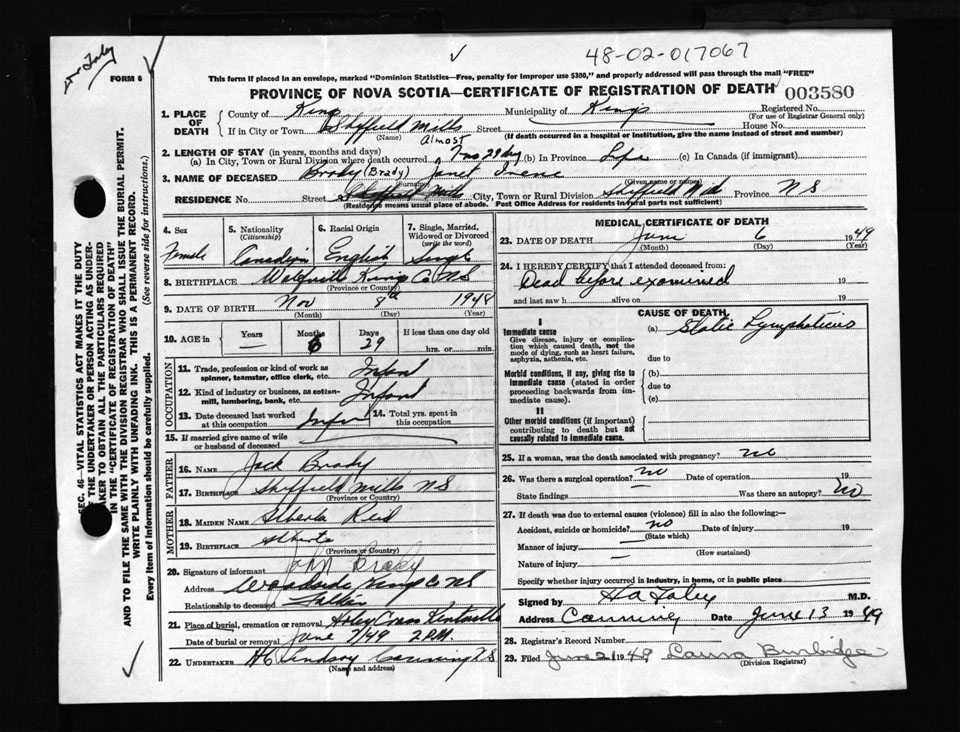 Dr Foley
48-02-017067
FORM 6
This form if placed in an envelope, marked "Dominion Statistics—Free, penalty for improper use $300," and properly addressed will pass through the mail "FREE"
PROVINCE OF NOVA SCOTIA—CERTIFICATE OF REGISTRATION OF DEATH 003580
1. PLACE OF DEATH
County of Kings Municipality of Kings Registered No.
(For use of Registrar General only)
If in City or Town Sheffield Mills Street House No.
(Name) (If death occurred in a hospital or institution, give the name instead of street and number)
Almost
2. LENGTH OF STAY (in years, months and days)
(a) In City, Town or Rural Division where death occurred 29 dys (b) In Province Life (c) In Canada (if immigrant)
3. NAME OF DECEASED Brady (Brady) Janet Irene
(Surname) (Given name or names)
RESIDENCE No. Street Sheffield Mills City, Town or Rural Division Sheffield Mills Province N S
(Residence means usual place of abode. Post Office Address for residents in rural parts not sufficient)
4. Sex 5. Nationality (Citizenship) 6. Racial Origin 7. Single, Married, Widowed or Divorced (write the word)
Female Canadian English Single
8. BIRTHPLACE Wolfville Kings Co. NS
(Province or Country)
9. DATE OF BIRTH Nov 8th 1948
(Month) (Day) (Year)
10. AGE in Years Months Days If less than one day old
6 29 hrs. or min.
OCCUPATION
11. Trade, profession or kind of work as spinner, teamster, office clerk, etc. Infant
12. Kind of industry or business, as cotton-mill, lumbering, bank, etc. Infant
13. Date deceased last worked at this occupation Infant 14. Total yrs. spent in this occupation
15. If married give name of wife or husband of deceased
FATHER
16. NAME Jack Brady
17. BIRTHPLACE Sheffield Mills NS
(Province or Country)
MOTHER
18. MAIDEN NAME Reid
19. BIRTHPLACE Alberta
(Province or Country)
20. Signature of informant John Brady
Address Woodside Kings Co NS
Relationship to deceased Father
21. Place of burial, cremation or removal Holey Cross Kentville
Date of burial or removal June 7/49 2 P.M.
22. UNDERTAKER Lindsay Canning NS
(Name and address)
MEDICAL CERTIFICATE OF DEATH
23. DATE OF DEATH June 6 1949
(Month) (Day) (Year)
24. I HEREBY CERTIFY that I attended deceased from:
Dead before examined 19
and last saw h alive on 19
CAUSE OF DEATH
I
Immediate cause
Give disease, injury or complication which caused death, not the mode of dying, such as heart failure, asphyxia, asthenia, etc.
(a) Static Lymphaticus
due to
Morbid conditions, if any, giving rise to immediate cause (stated in order proceeding backwards from immediate cause).
(b)
due to
(c)
II
Other morbid conditions (if important) contributing to death but not causally related to immediate cause.
25. If a woman, was the death associated with pregnancy? no
26. Was there a surgical operation? no Date of operation 19
State findings Was there an autopsy? no
27. If death was due to external causes (violence) fill in also the following:—
Accident, suicide or homicide? no Date of injury 19
(State which)
Manner of injury
(How sustained)
Nature of injury
Specify whether injury occurred in industry, in home, or in public place
Signed by H A Foley M.D.
Address Canning Date June 13 1949
28. Registrar's Record Number
29. Filed June 21 1949 Laura Burbidge
(Division Registrar)
SEC. 46—VITAL STATISTICS ACT MAKES IT THE DUTY
OF THE UNDERTAKER OR PERSON ACTING AS UNDER-
TAKER TO OBTAIN ALL THE PARTICULARS REQUIRED
IN THE "CERTIFICATE OF REGISTRATION OF DEATH"
AND TO FILE THE SAME WITH THE DIVISION REGISTRAR WHO SHALL ISSUE THE BURIAL PERMIT.
WRITE PLAINLY WITH UNFADING INK. THIS IS A PERMANENT RECORD.
Every item of information should be carefully supplied. (See reverse side for instructions.)